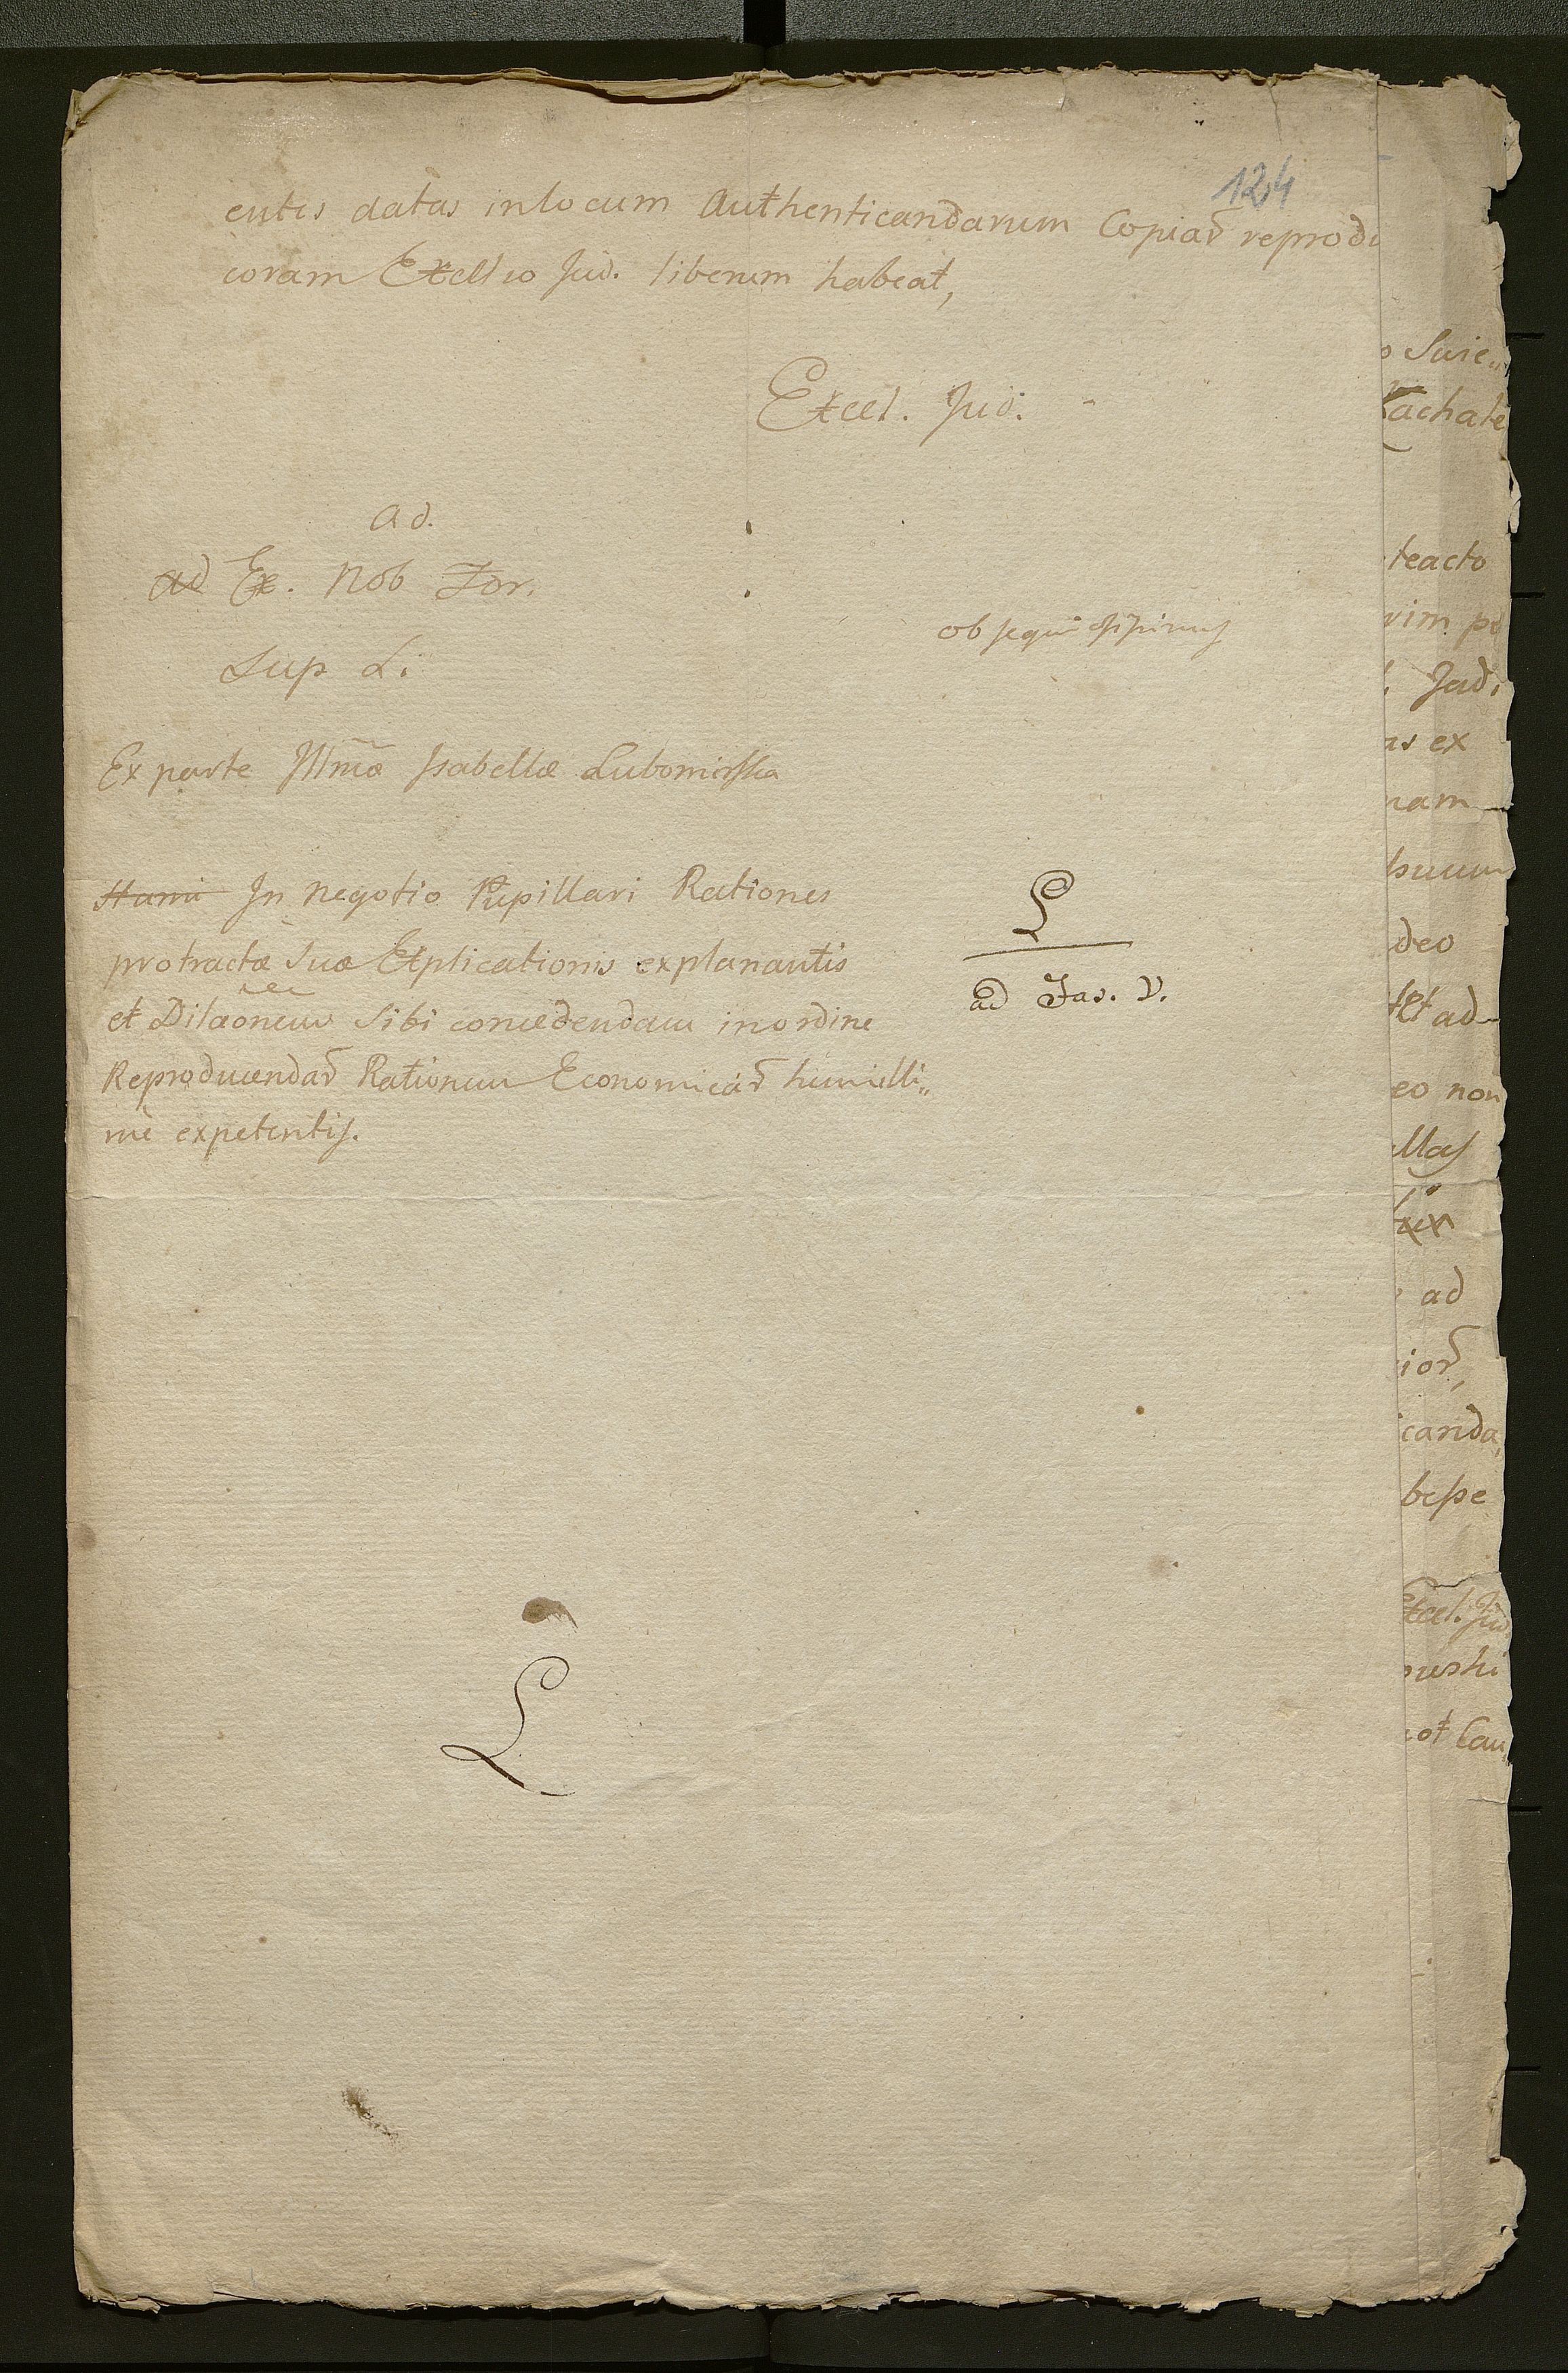 124
entes datas in locum Authenticandarum Copiar̃ reprodu
coram Excellso Jud. liberum habeat,
Excel. Jud.
ad.
ad Ex. Nob For.
Sup L.
obsequissimus
Ex parte Illmæ Isabellæ Lubomirska
In negotio Pupillari Rationes
protractæ Suæ Explicationis explanantis
et Dilãonem Sibi concedendam in ordine
Reproducendar̃ Rationum Economicar̃ humilli„
mè expetentis.
L
ad Fas. V.
L
o Suie
Kachate
teacto
rim po
Jud.
as ex
nam
deo
ad
eo non
ellas
ad
ior̃,
icanda,
besse
Excel. Jud
not Cau